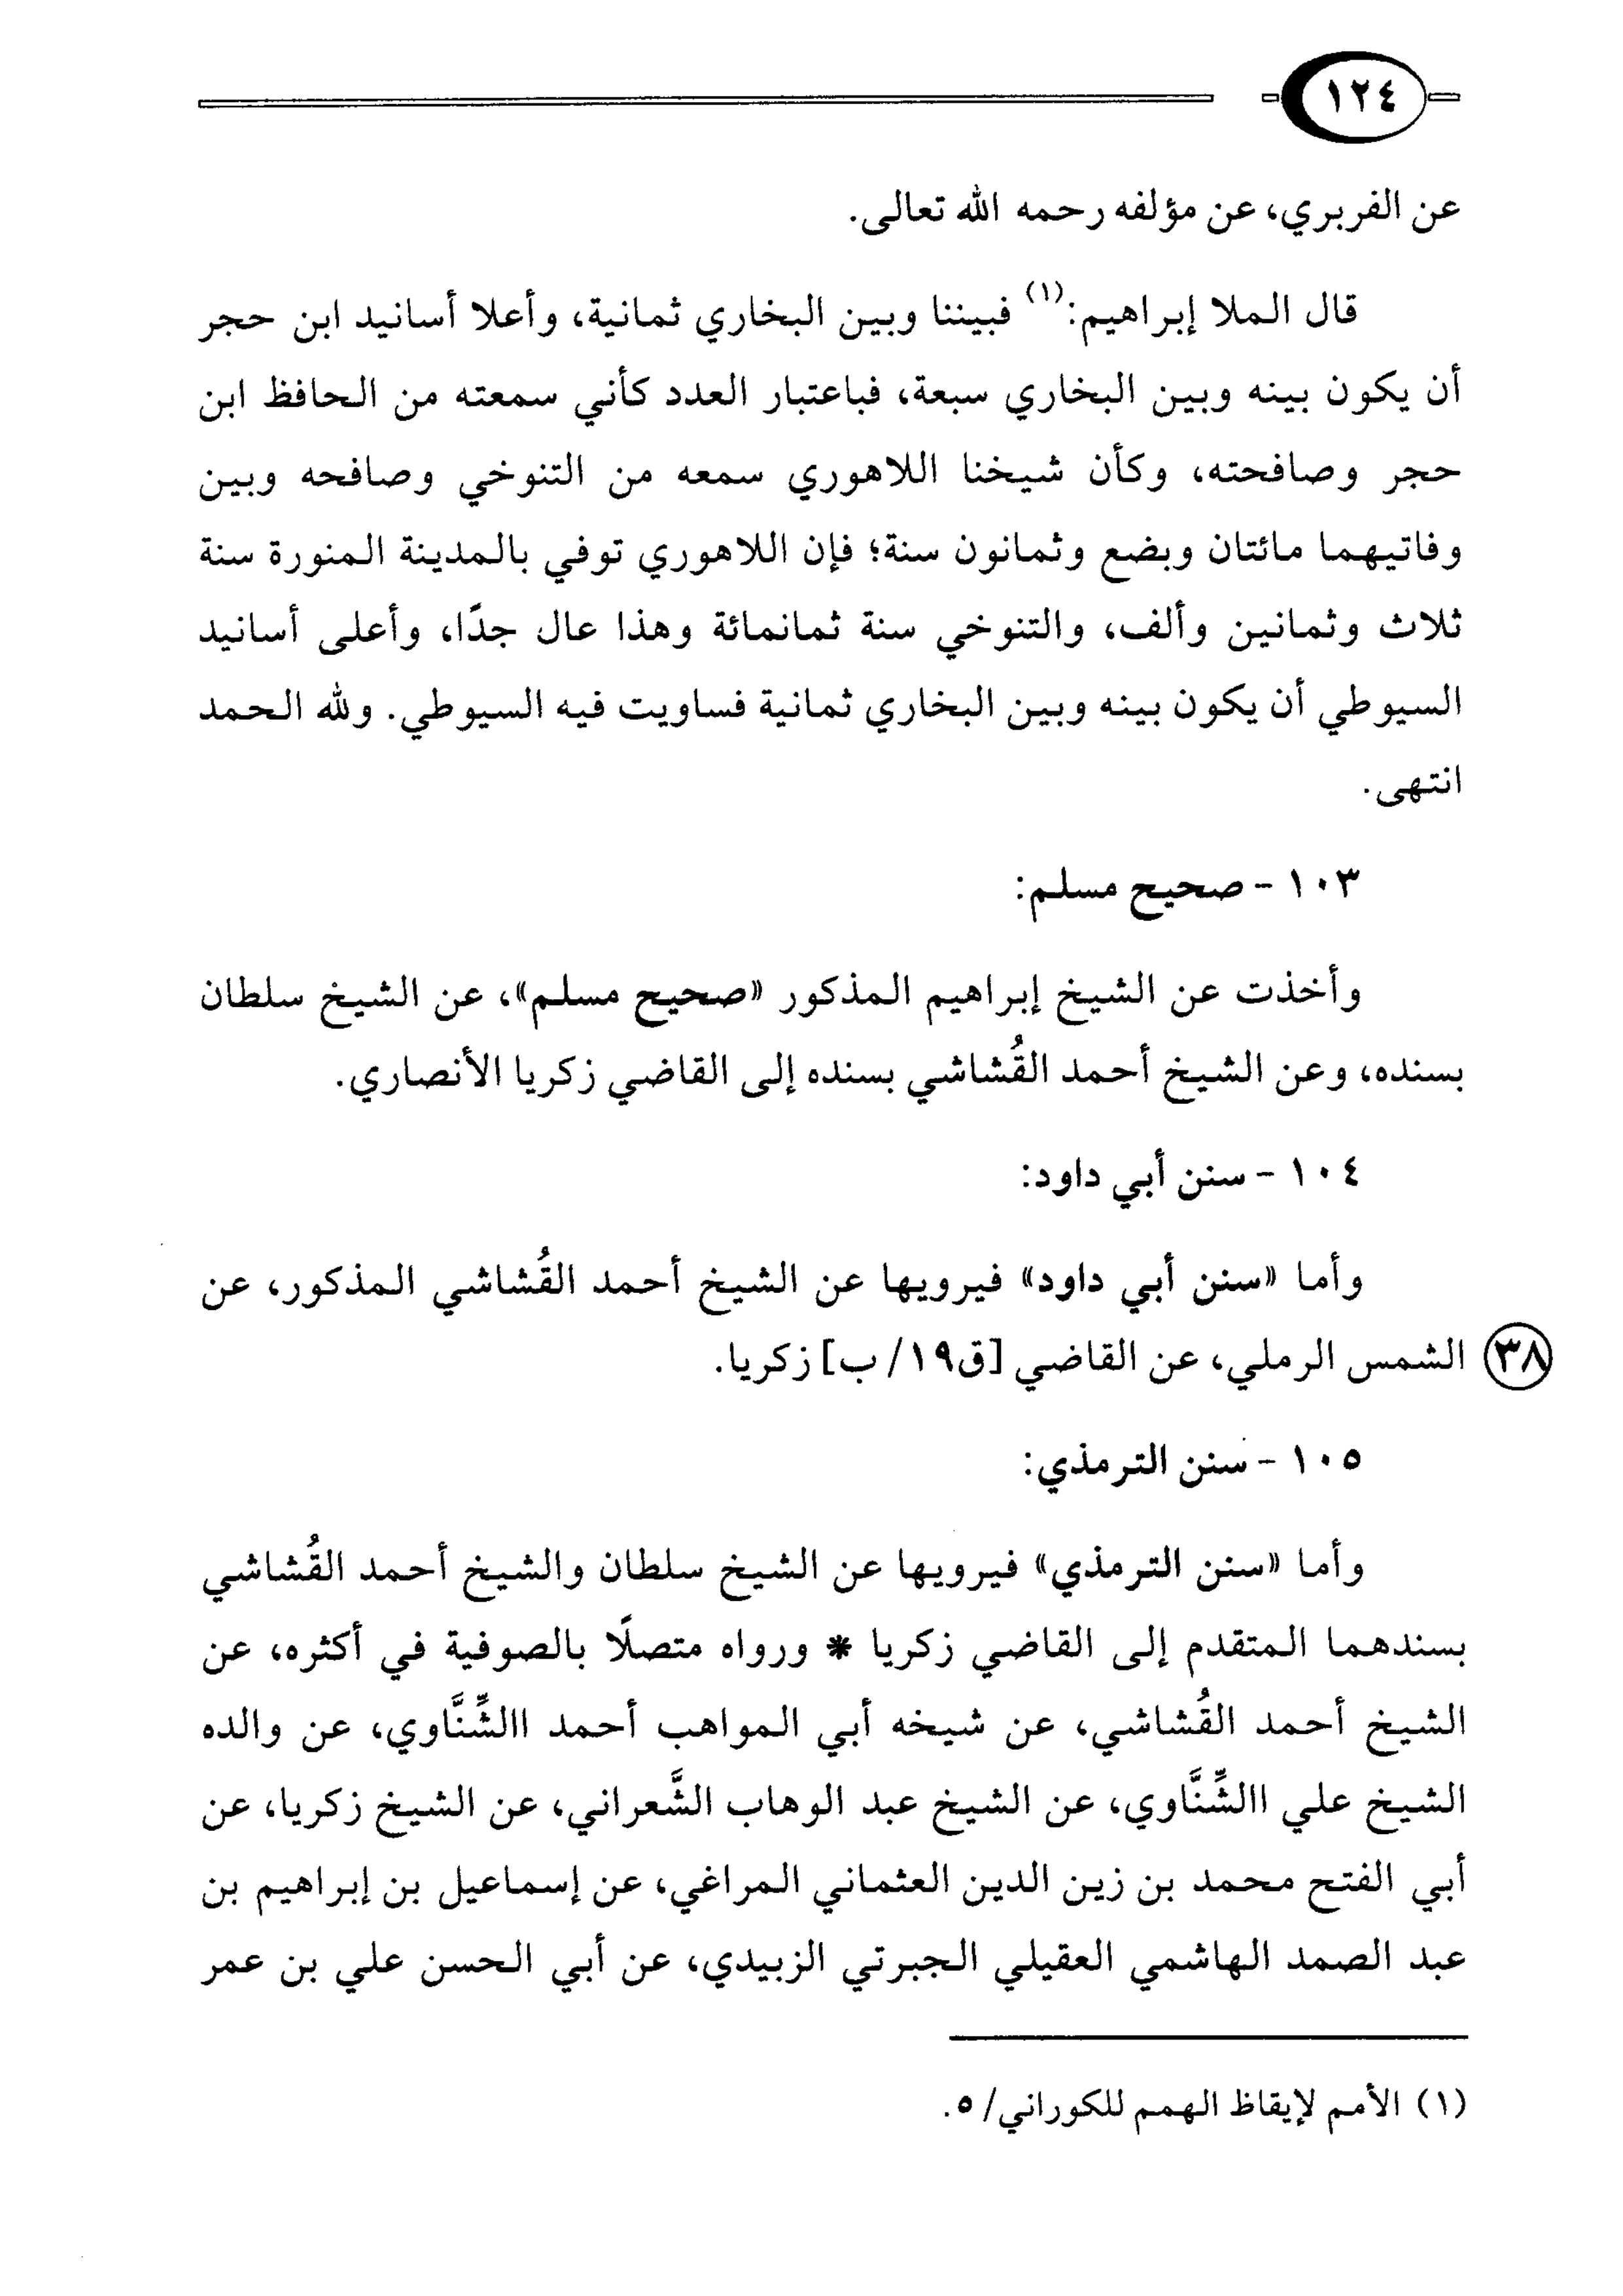 ١٢٤
عن الفربري، عن مؤلفه رحمه الله تعالى.
قال الملا إبراهيم:(١) فبيننا وبين البخاري ثمانية، وأعلا أسانيد ابن حجر
أن يكون بينه وبين البخاري سبعة، فباعتبار العدد كأني سمعته من الحافظ ابن
حجر وصافحته، وكأن شيخنا اللاهوري سمعه من التنوخي وصافحه وبين
وفاتيهما مائتان وبضع وثمانون سنة؛ فإن اللاهوري توفي بالمدينة المنورة سنة
ثلاث وثمانين وألف، والتنوخي سنة ثمانمائة وهذا عال جدًا، وأعلى أسانيد
السيوطي أن يكون بينه وبين البخاري ثمانية فساويت فيه السيوطي. ولله الحمد
انتهى.
١٠٣ - صحيح مسلم:
وأخذت عن الشيخ إبراهيم المذكور «صحيح مسلم»، عن الشيخ سلطان
بسنده، وعن الشيخ أحمد القُشاشي بسنده إلى القاضي زكريا الأنصاري.
١٠٤ - سنن أبي داود:
وأما «سنن أبي داود» فيرويها عن الشيخ أحمد القُشاشي المذكور، عن
الشمس الرملي، عن القاضي [ق١٩/ ب] زكريا.
٣٨
١٠٥ - سنن الترمذي:
وأما «سنن الترمذي» فيرويها عن الشيخ سلطان والشيخ أحمد القُشاشي
بسندهما المتقدم إلى القاضي زكريا * ورواه متصلًا بالصوفية في أكثره، عن
الشيخ أحمد القُشاشي، عن شيخه أبي المواهب أحمد االشِّنَّاوي، عن والده
الشيخ علي االشِّنَّاوي، عن الشيخ عبد الوهاب الشَّعراني، عن الشيخ زكريا، عن
أبي الفتح محمد بن زين الدين العثماني المراغي، عن إسماعيل بن إبراهيم بن
عبد الصمد الهاشمي العقيلي الجبرتي الزبيدي، عن أبي الحسن علي بن عمر
(١) الأمم لإيقاظ الهمم للكوراني/ ٥.